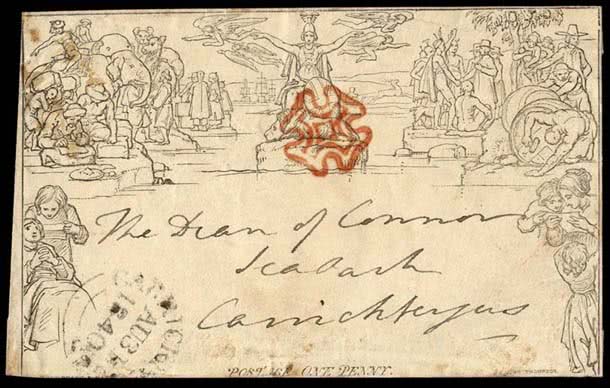 The Dean of Connor
Seapark
Carrickfergus
AU
1840
POSTAGE ONE PENNY.
THOMPSON.